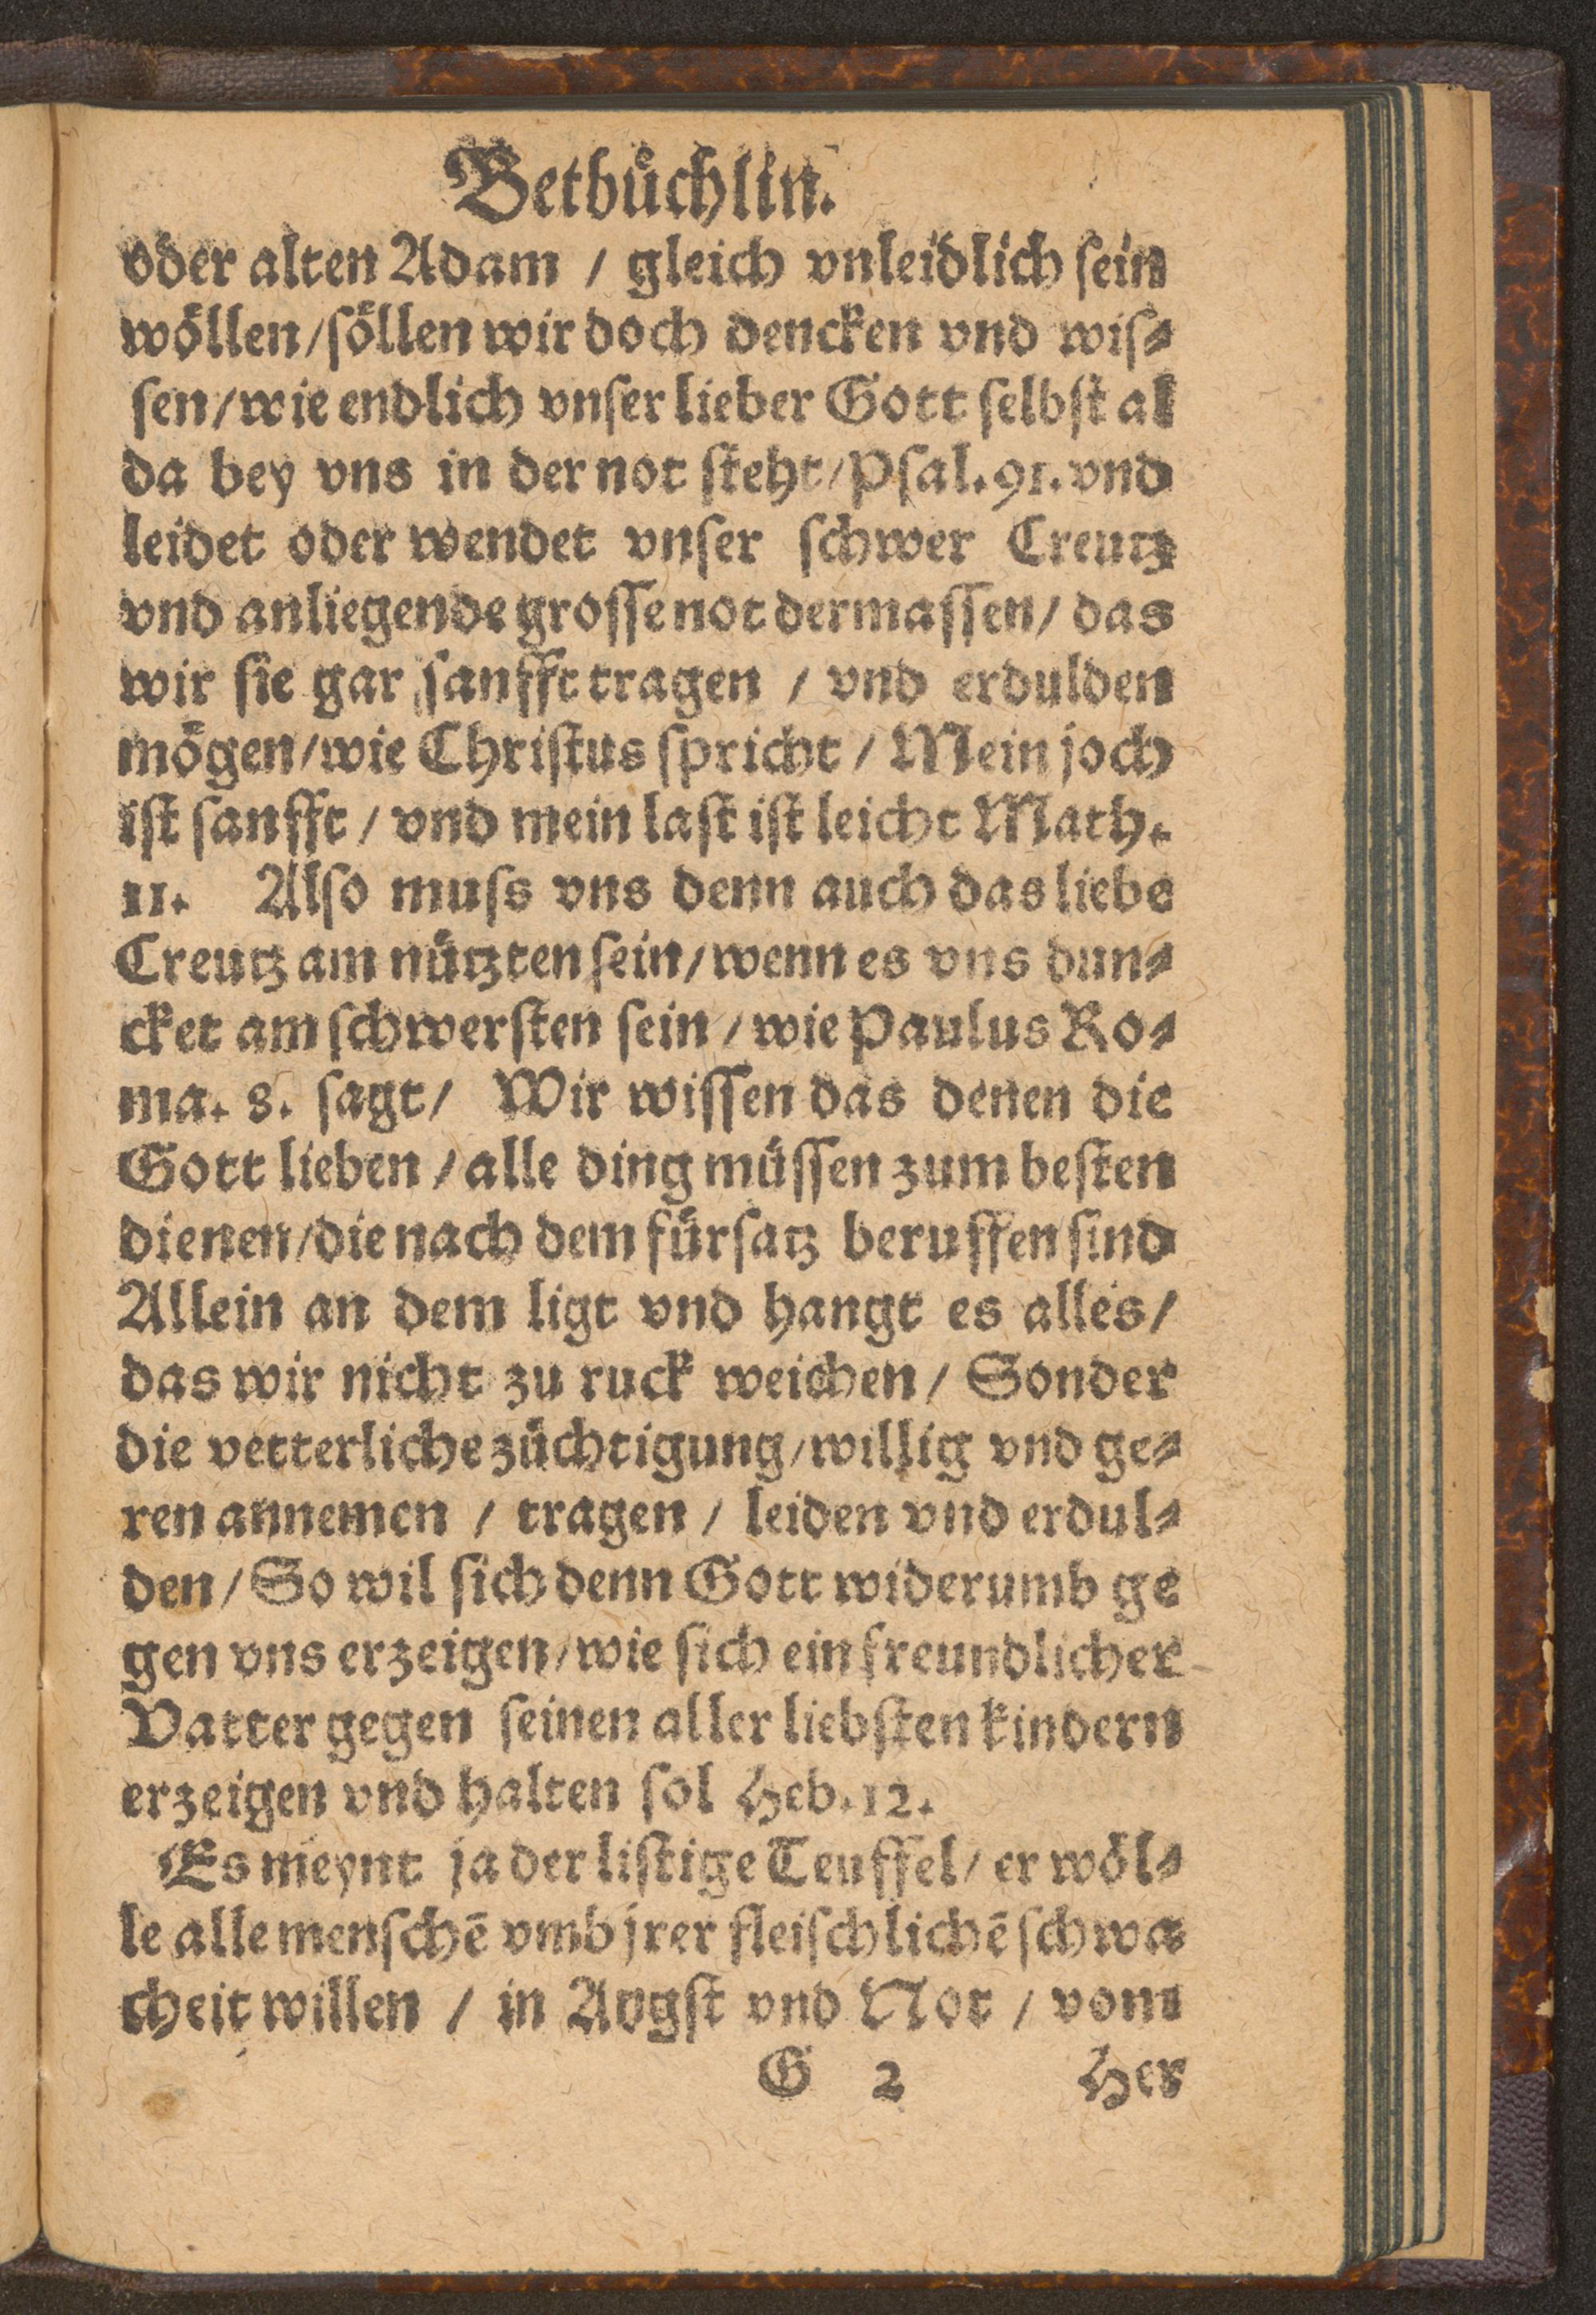 Betbuͤchlin.
oder alten Adam / gleich vnleidlich ſein
woͤllen / ſoͤllen wir doch dencken vnd wiſ⸗
ſen / wie endlich vnſer lieber Gott ſelbſt al
da bey vns in der not ſteht / Pſal. 91. vnd
leidet oder wendet vnſer ſchwer Creutz
vnd anliegende groſſe not dermaſſen / das
wir ſie gar ſanfft tragen / vnd erdulden
moͤgen / wie Chriſtus ſpricht / Mein joch
iſt ſanfft / vnd mein laſt iſt leicht Math.
11. Alſo muſs vns denn auch das liebe
Creutz am nuͤtzten ſein / wenn es vns dun⸗
cket am ſchwerſten ſein / wie Paulus Ro⸗
ma. 8. ſagt / Wir wiſſen das denen die
Gott lieben / alle ding muͤſſen zum beſten
dienen / die nach dem fuͤrſatz beruffen ſind
Allein an dem ligt vnd hangt es alles /
das wir nicht zu ruck weichen / Sonder
die vetterliche zuͤchtigung / willig vnd ge⸗
ren annemen / tragen / leiden vnd erdul⸗
den / So wil ſich denn Gott widerumb ge
gen vns erzeigen / wie ſich ein freundlicher
Vatter gegen ſeinen aller liebſten kindern
erzeigen vnd halten ſol Heb. 12.
Es meynt ja der liſtige Teuffel / er woͤl⸗
le alle menſchē vmb jrer fleiſchlichē ſchwa
cheit willen / in Avgſt vnd Not / vom
G 2 Her